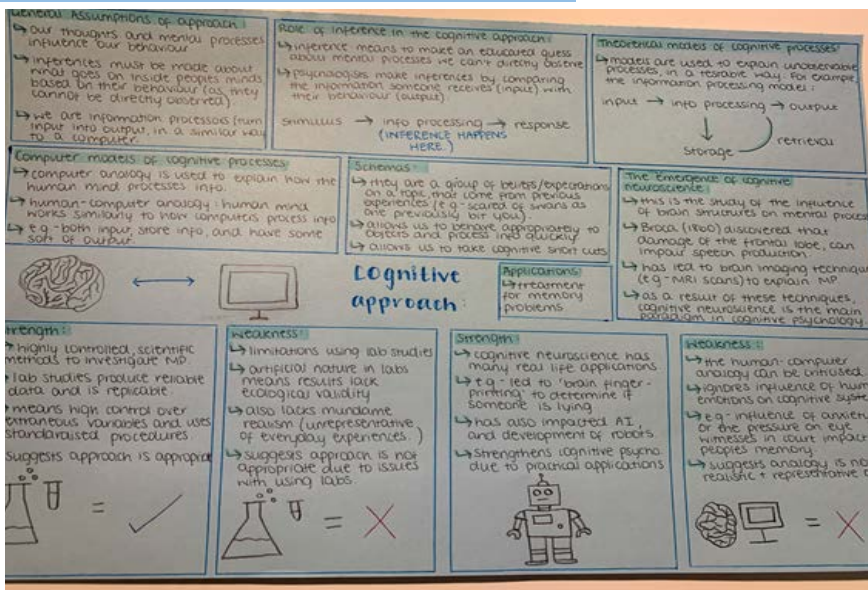 General Assumptions of approach:
↳ our thoughts and mental processes
influence our behaviour
↳ inferences must be made about
what goes on inside peoples minds
based on their behaviour (as they
cannot be directly observed).
↳ we are information processors (turn
input into output, in a similar way
to a computer.
Role of inference in the cognitive approach:
↳ inference means to make an educated guess
about mental processes we can't directly observe
↳ psychologists make inferences by comparing
the information someone receives (input) with
their behaviour (output).
stimulus → info processing → response
(INFERENCE HAPPENS
HERE.)
Theoretical models of cognitive processes:
↳ models are used to explain unobservable
processes, in a testable way. For example
the information processing model:
input → info processing → output
storage
retrieval
Computer models of cognitive processes:
↳ computer analogy is used to explain how the
human mind processes info.
↳ human-computer analogy: human mind
works similarly to how computers process info
↳ e.g - both input, store info, and have some
sort of output.
Schemas:
↳ they are a group of beliefs/expectations
on a topic, that come from previous
experiences (e.g - scared of swans as
one previously bit you).
↳ allows us to behave appropriately to
objects and process info quickly
↳ allows us to take cognitive short cuts
The emergence of cognitive
neuroscience:
↳ this is the study of the influence
of brain structures on mental proces
↳ Broca (1860) discovered that
damage of the frontal lobe, can
impair speech production.
↳ has led to brain imaging technique
(e.g - MRI scans) to explain MP
↳ as a result of these techniques,
cognitive neuroscience is the main
paradigm in cognitive psychology
cognitive
approach:
Applications:
↳ treatment
for memory
problems
trength:
↳ highly controlled, scientific
methods to investigate MP.
↳ lab studies produce reliable
data and is replicable.
↳ means high control over
extraneous variables and uses
standardised procedures.
suggests approach is appropriat
=
Weakness:
↳ limitations using lab studies
↳ artificial nature in labs
means results lack
ecological validity
↳ also lacks mundane
realism (unrepresentative
of everyday experiences.)
↳ suggests approach is not
appropriate due to issues
with using labs.
=
Strength:
↳ cognitive neuroscience has
many real life applications
↳ e.g - led to 'brain finger-
printing' to determine if
someone is lying
↳ has also impacted AI,
and development of robots.
↳ strengthens cognitive psycho
due to practical applications
Weakness:
↳ the human-computer
analogy can be critiused.
↳ ignores influence of hum
emotions on cognitive syste
↳ e.g - influence of anxiety
or the pressure on eye
witnesses in court impact
peoples memory.
↳ suggests analogy is no
realistic + representative
=